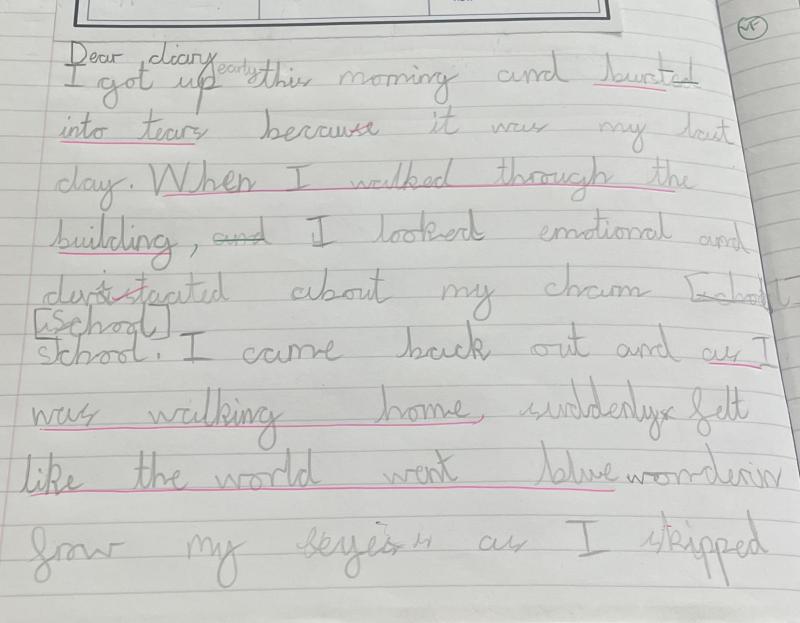 VF
Dear diary
I got up early this morning and bursted
into tears because it was my last
day. When I walked through the
building, and I looked emotional and
about my charm
[School]
School. I came back out and as I
was walking home, suddenly felt
like the world went blue wonderin
my as I skipped